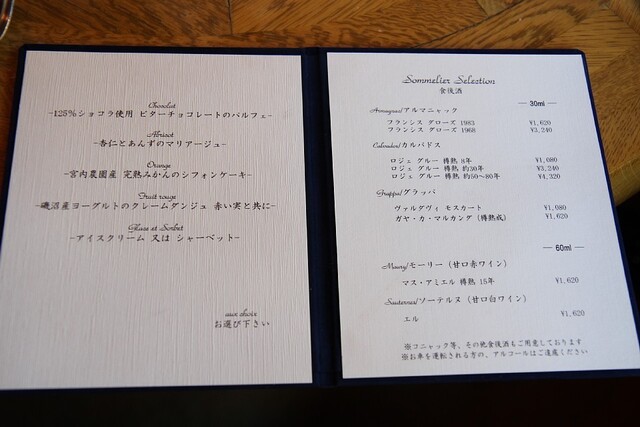 Chocolat
-125%ショコラ使用 ビターチョコレートのパルフェ-
Abricot
-杏仁とあんずのマリアージュ-
Orange
-宮内農園産 完熟みかんのシフォンケーキ-
Fruit rouge
-磯沼産ヨーグルトのクレームダンジュ 赤い実と共に-
Glace et Sorbet
-アイスクリーム 又は シャーベット-
aux choix
お選び下さい
Sommelier Selection
食後酒
― 30ml ―
Armagnac/アルマニャック
フランシス グローズ 1983 ¥1,620
フランシス グローズ 1968 ¥3,240
Calvados/カルバドス
ロジェ グルー 樽熟 8年 ¥1,080
ロジェ グルー 樽熟 約30年 ¥3,240
ロジェ グルー 樽熟 約50～80年 ¥4,320
Grappa/グラッパ
ヴァルダヴィ モスカート ¥1,080
ガヤ・カ・マルカンダ (樽熟成) ¥1,620
― 60ml ―
Maury/モーリー (甘口赤ワイン)
マス・アミエル 樽熟 15年 ¥1,620
Sauternes/ソーテルヌ (甘口白ワイン)
エル ¥1,620
※コニャック等、その他食後酒もご用意しております
※お車を運転される方の、アルコールはご遠慮ください